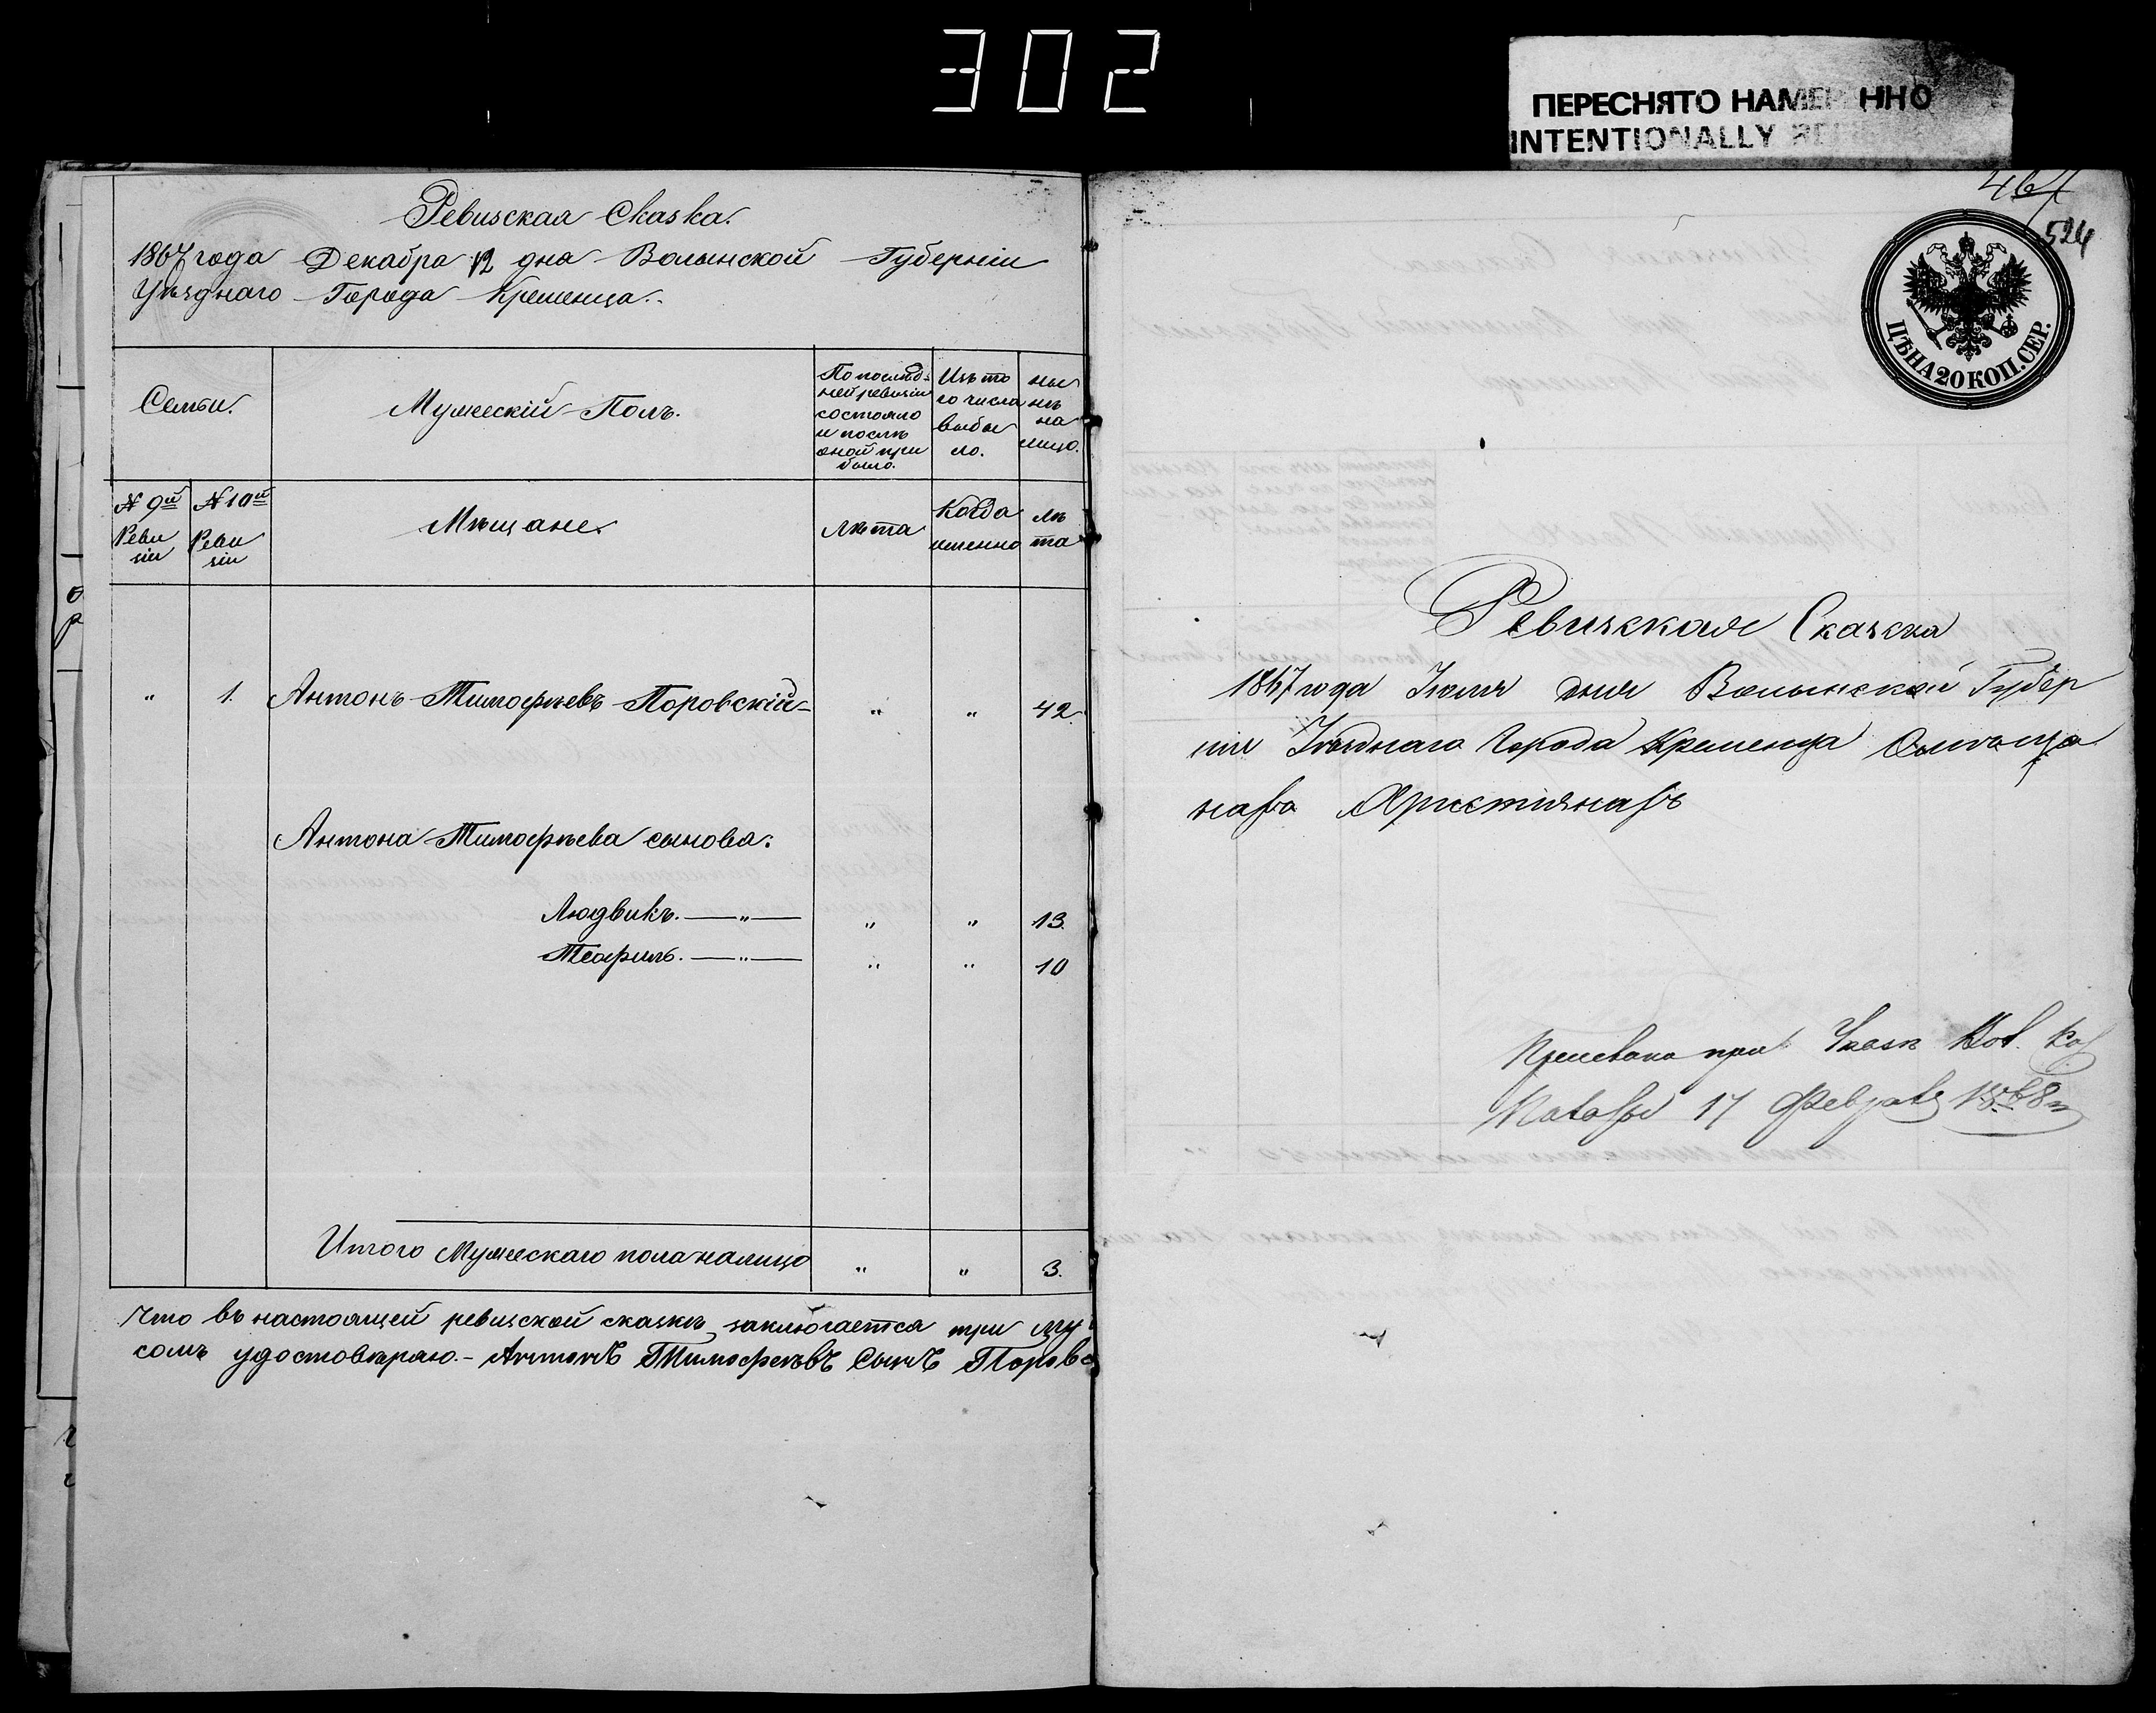 302
ПЕРЕСНЯТО НАМЕРЕННО
INTENTIONALLY
Ревизская Сказка.
1867 года Декабря 12 дня Волынской Губерніи
Уѣзднаго Города Кременца.
Семьи.
Мужескій Полъ.
По послѣд-
ней ревизіи
состояло
и послѣ
оной при
было.
Изъ то
го числа
выбы
ло.
ны
нѣ
на
лицо.
№ 9й
Реви
зіи
№ 10й
Реви
зіи
Мѣщане.
Лѣта
Когда
именно
лѣ
та
„ 1. Антонъ Тимофѣевъ Поровскій „ „ 42
Антона Тимофѣева сынова:
Людвикъ. — „ — „ „ 13.
Теофилъ. — „ — „ „ 10
Итого Мужескаго пола налицо „ „ 3.
Что въ настоящей ревизской сказкѣ заключается три му
сомъ удостовѣряю.- Антонъ Тимофеевъ Сынъ Поровс
524
ЦѢНА 20 КОП. СЕР.
Ревизская Сказка
1867 года Іюля дня Волынской Губер
ніи Уѣзднаго Города Кременца
Христіянъ
при Указѣ
17 Февраля 1868 г